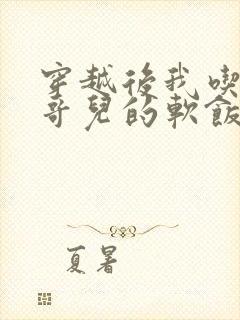 穿越後我喫
哥兒的軟飯
夏暑